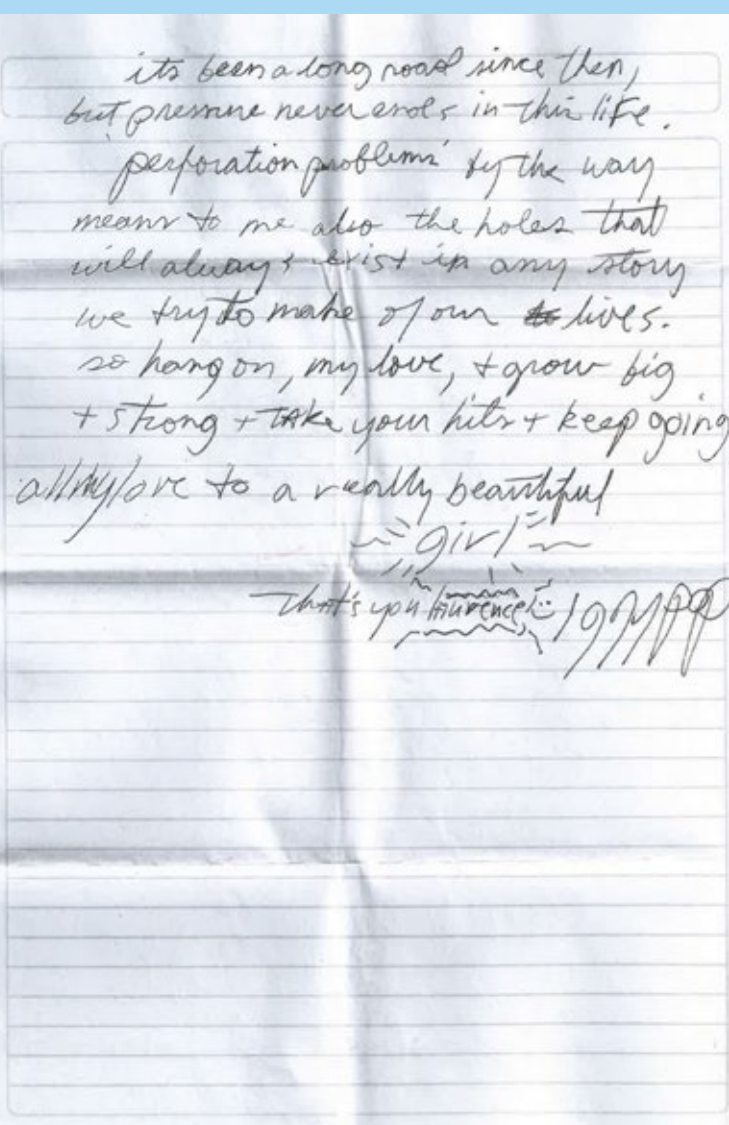 its been a long road since then,
but pressure never ends in this life.
'perforation problems' by the way
means to me also the holes that
will always exist in any story
we try to make of our lives.
so hang on, my love, + grow big
+ strong + take your hits + keep going
all my love to a really beautiful
girl
that's you laurence
iggy pop